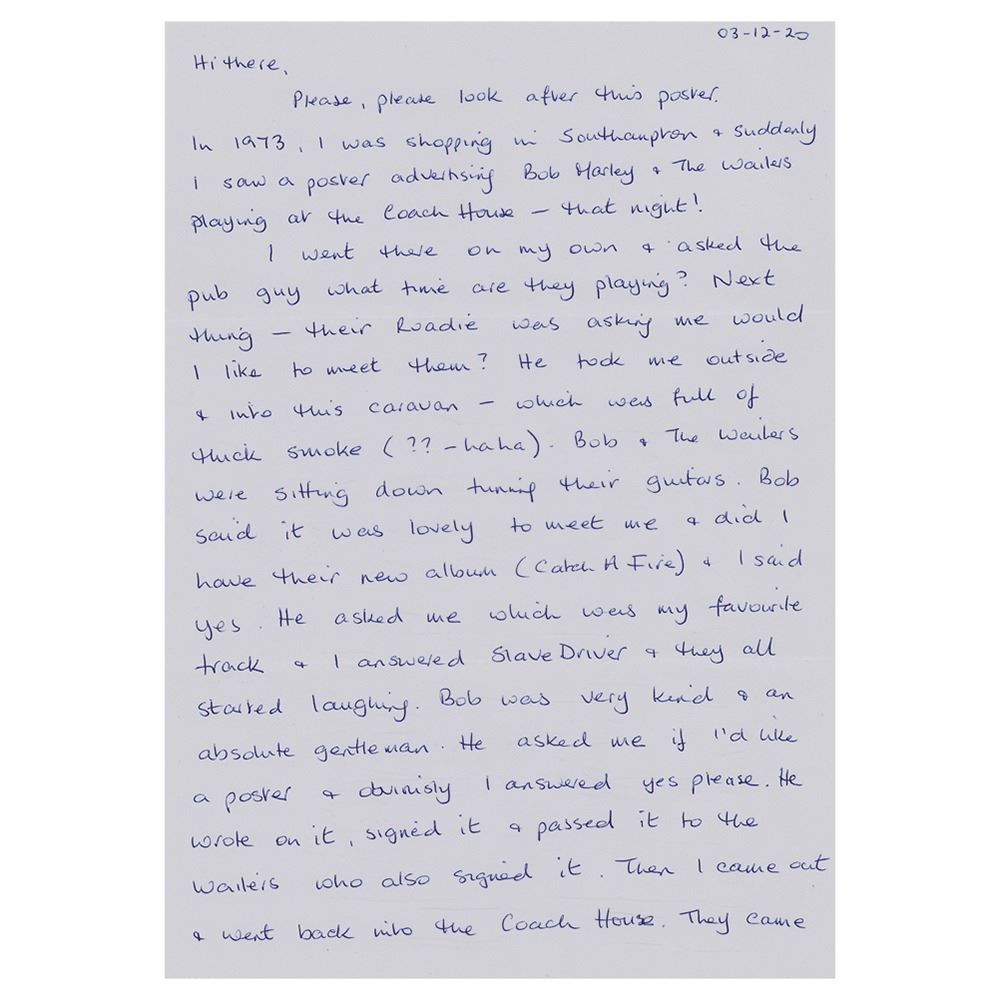 03-12-20
Hi there,
Please, please look after this poster.
In 1973, I was shopping in Southampton & suddenly
I saw a poster advertising Bob Marley & The Wailers
playing at the Coach House – that night!
I went there on my own & asked the
pub guy what time are they playing? Next
thing – their Roadie was asking me would
I like to meet them? He took me outside
& into this caravan – which was full of
thick smoke (?? – haha). Bob & The Wailers
were sitting down tunning their guitars. Bob
said it was lovely to meet me & did I
have their new album (Catch A Fire) & I said
yes. He asked me which was my favourite
track & I answered Slave Driver & they all
started laughing. Bob was very kind & an
absolute gentleman. He asked me if I'd like
a poster & obvinisly I answered yes please. He
wrote on it, signed it & passed it to the
Wailers who also signed it. Then I came out
& went back into the Coach House. They came